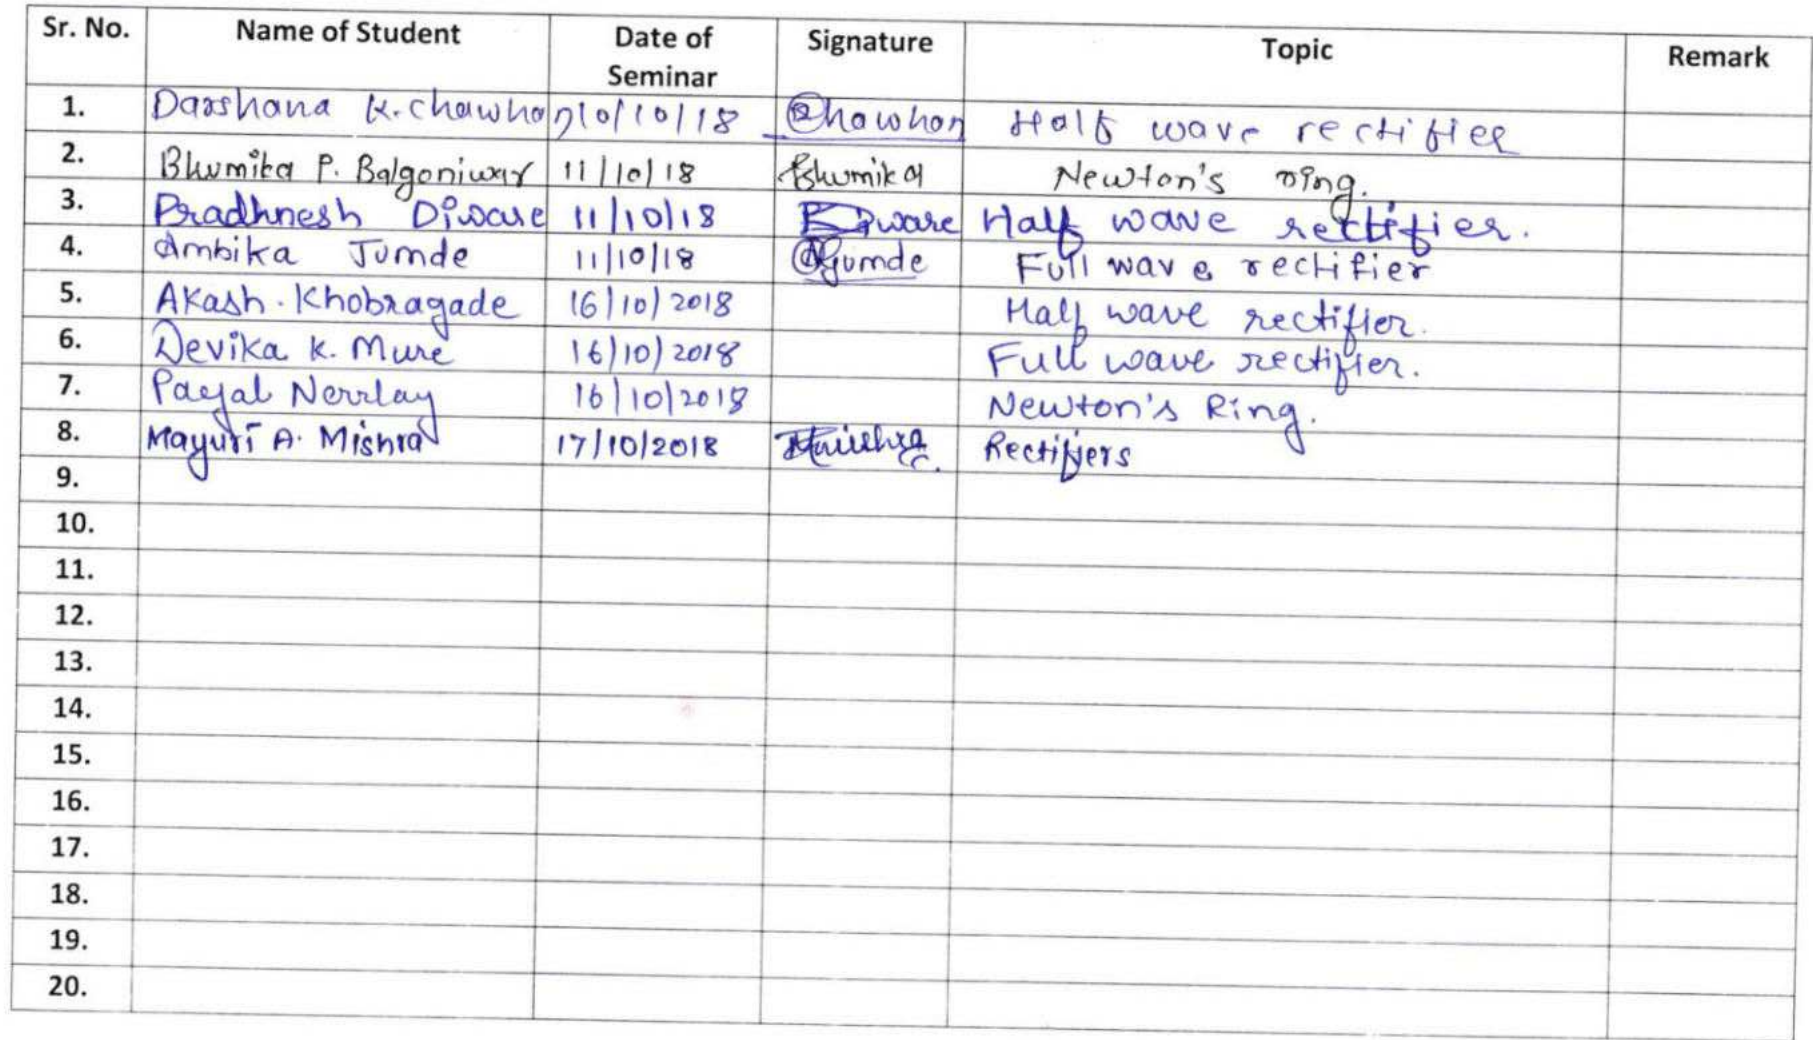 Sr. No. Name of Student Date of Seminar Signature Topic Remark
1. Darshana K. Chawhan 10/10/18 Chawhan Half wave rectifier
2. Bhumika P. Balgoniwar 11/10/18 Bhumika Newton's ring.
3. Pradhnesh Diware 11/10/18 Diware Half wave rectifier.
4. Ambika Jumde 11/10/18 AJumde Full wave rectifier
5. Akash. Khobragade 16/10/2018 Half wave rectifier.
6. Devika K. Mure 16/10/2018 Full wave rectifier.
7. Payal 16/10/2018 Newton's Ring.
8. Mayuri A. Mishra 17/10/2018 Rectifiers
9.
10.
11.
12.
13.
14.
15.
16.
17.
18.
19.
20.